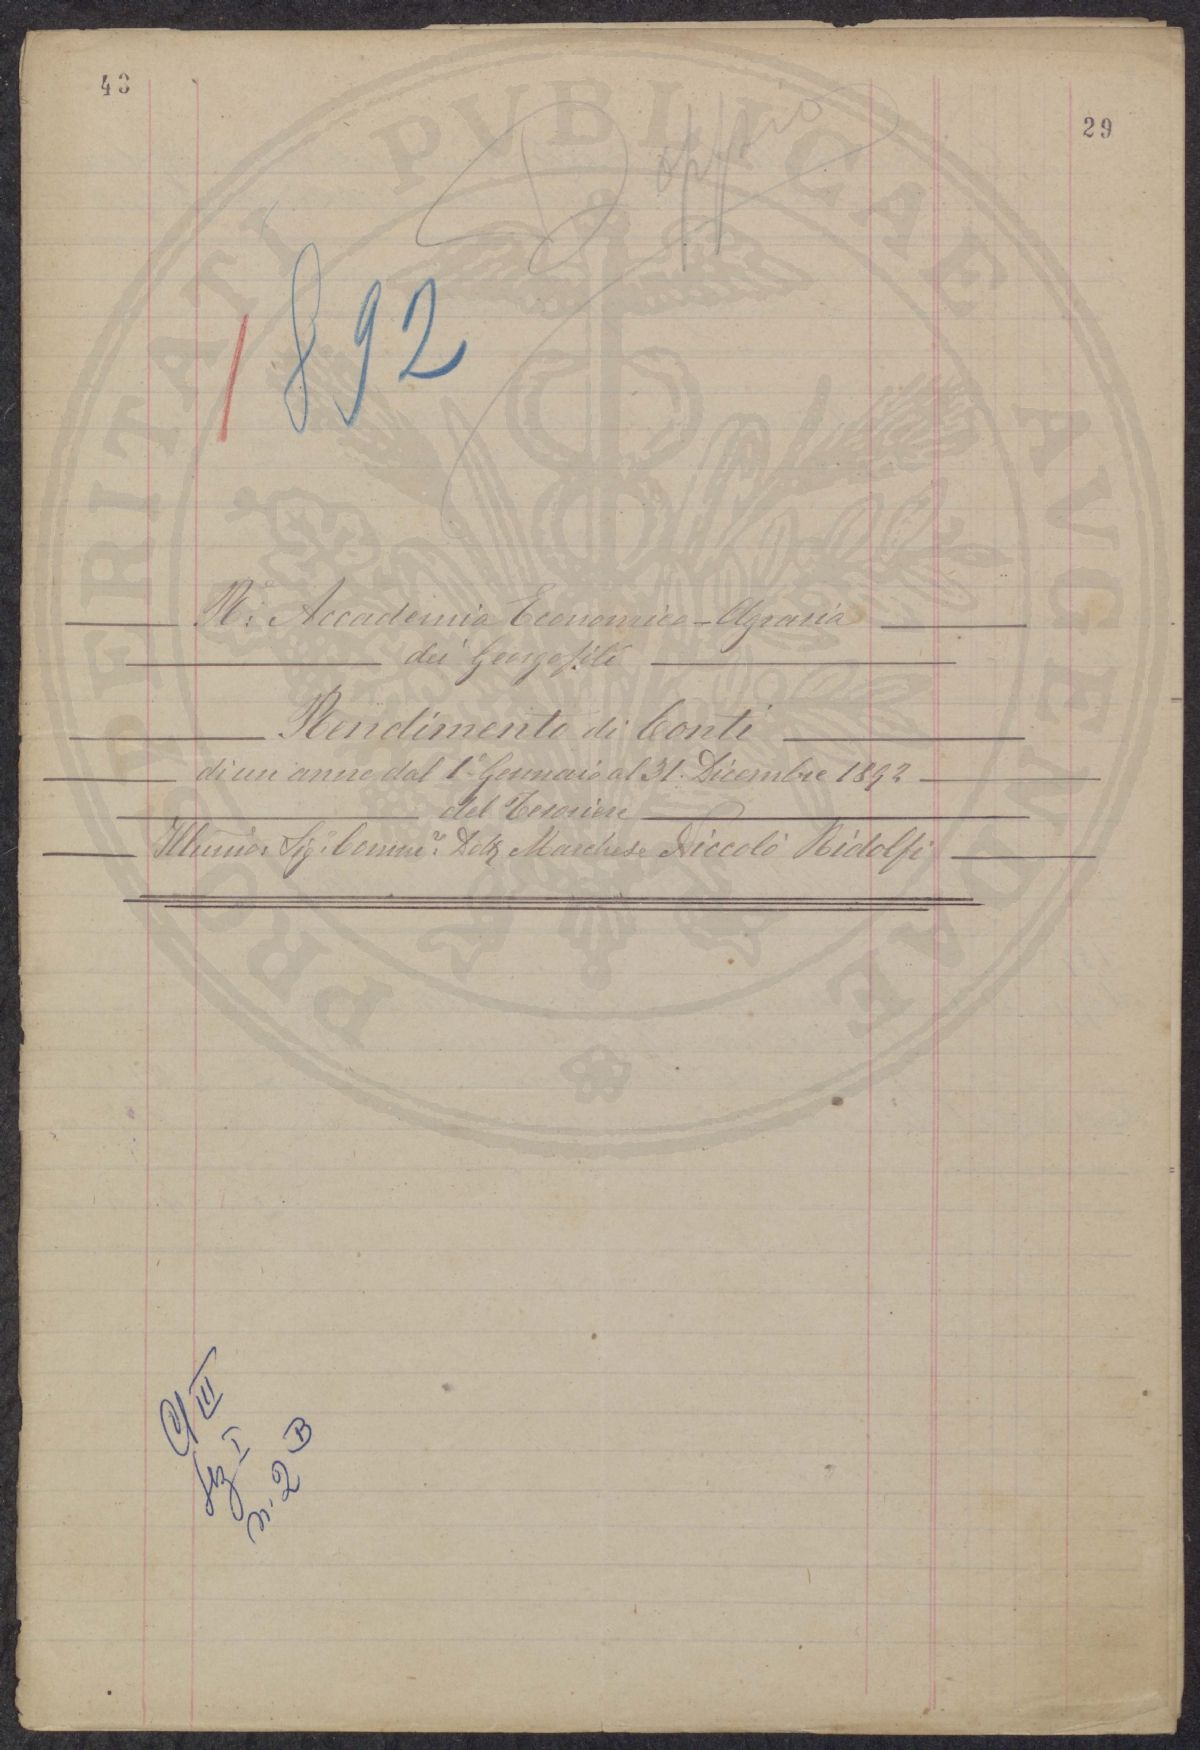 43
29
Doppio
1892
R.ª Accademia Economico-Agraria
dei Georgofili
Rendimento di Conti
di un anno dal 1.º Gennaio al 31. Dicembre 1892
del Tesoriere
Illmo Sig. Comm.re Dott. Marchese Niccolò Ridolfi
III
I
n. 2 B
PROSPERITATI PVBLICAE AVGENDAE